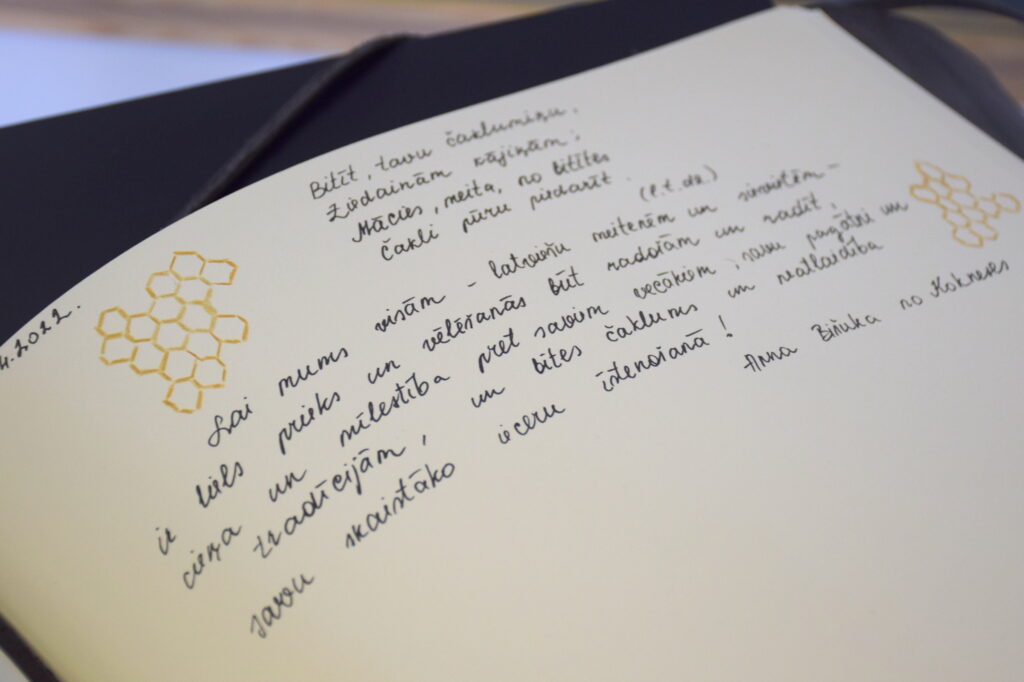 4.2022.
Bitīt, tavu čaklumiņu,
Ziedainām kājiņām;
Mācies, meita, no bitītes
Čakli pūru piedarīt. (l.t.dz.)
Lai mums visām – latviešu meitenēm un sievietēm –
ir liels prieks un vēlēšanās būt radošām un radīt,
cieņa un mīlestība pret saviem vecākiem, savu pagātni un
tradīcijām, un bites čaklums un neatlaidība
savu skaistāko ieceru īstenošanā!
Anna no Kokneses